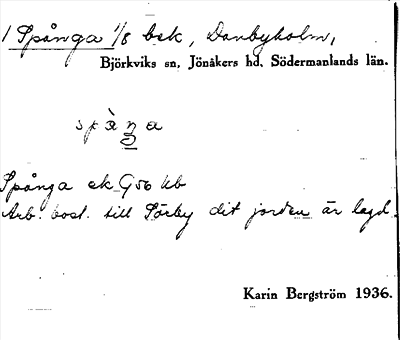 1 Spånga 1/8 bsk, Danbyholm,
Björkviks sn, Jönåkers hd, Södermanlands län.
spàŋa
Spånga ek G56 kb
Arb. bost. till Sörby dit jorden är lagd.
Karin Bergström 1936.